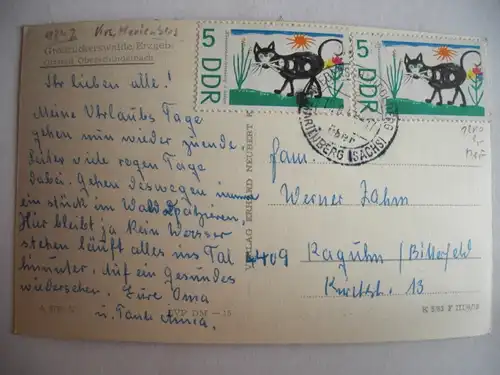 Großrückerswalde/Erzgeb.
Ihr lieben alle!
Meine Urlaubs Tage
gehen nun wieder zuende.
Leider viele regen Tage
dabei. Gehen deswegen immer
ein stück im Wald spatzieren.
Hier bleibt ja kein Wasser
stehen läuft alles ins Tal
hinunter. Auf ein gesundes
wiedersehen. Eure Oma
u. Tante Anna.
EVP DM –.15
VERLAG ERHARD NEUBERT K
5 DDR
5 DDR
MARIENBERG (SACHS)
Fam.
Werner Zahm
4409 Raguhn/Bitterfeld
Kirchstr. 13